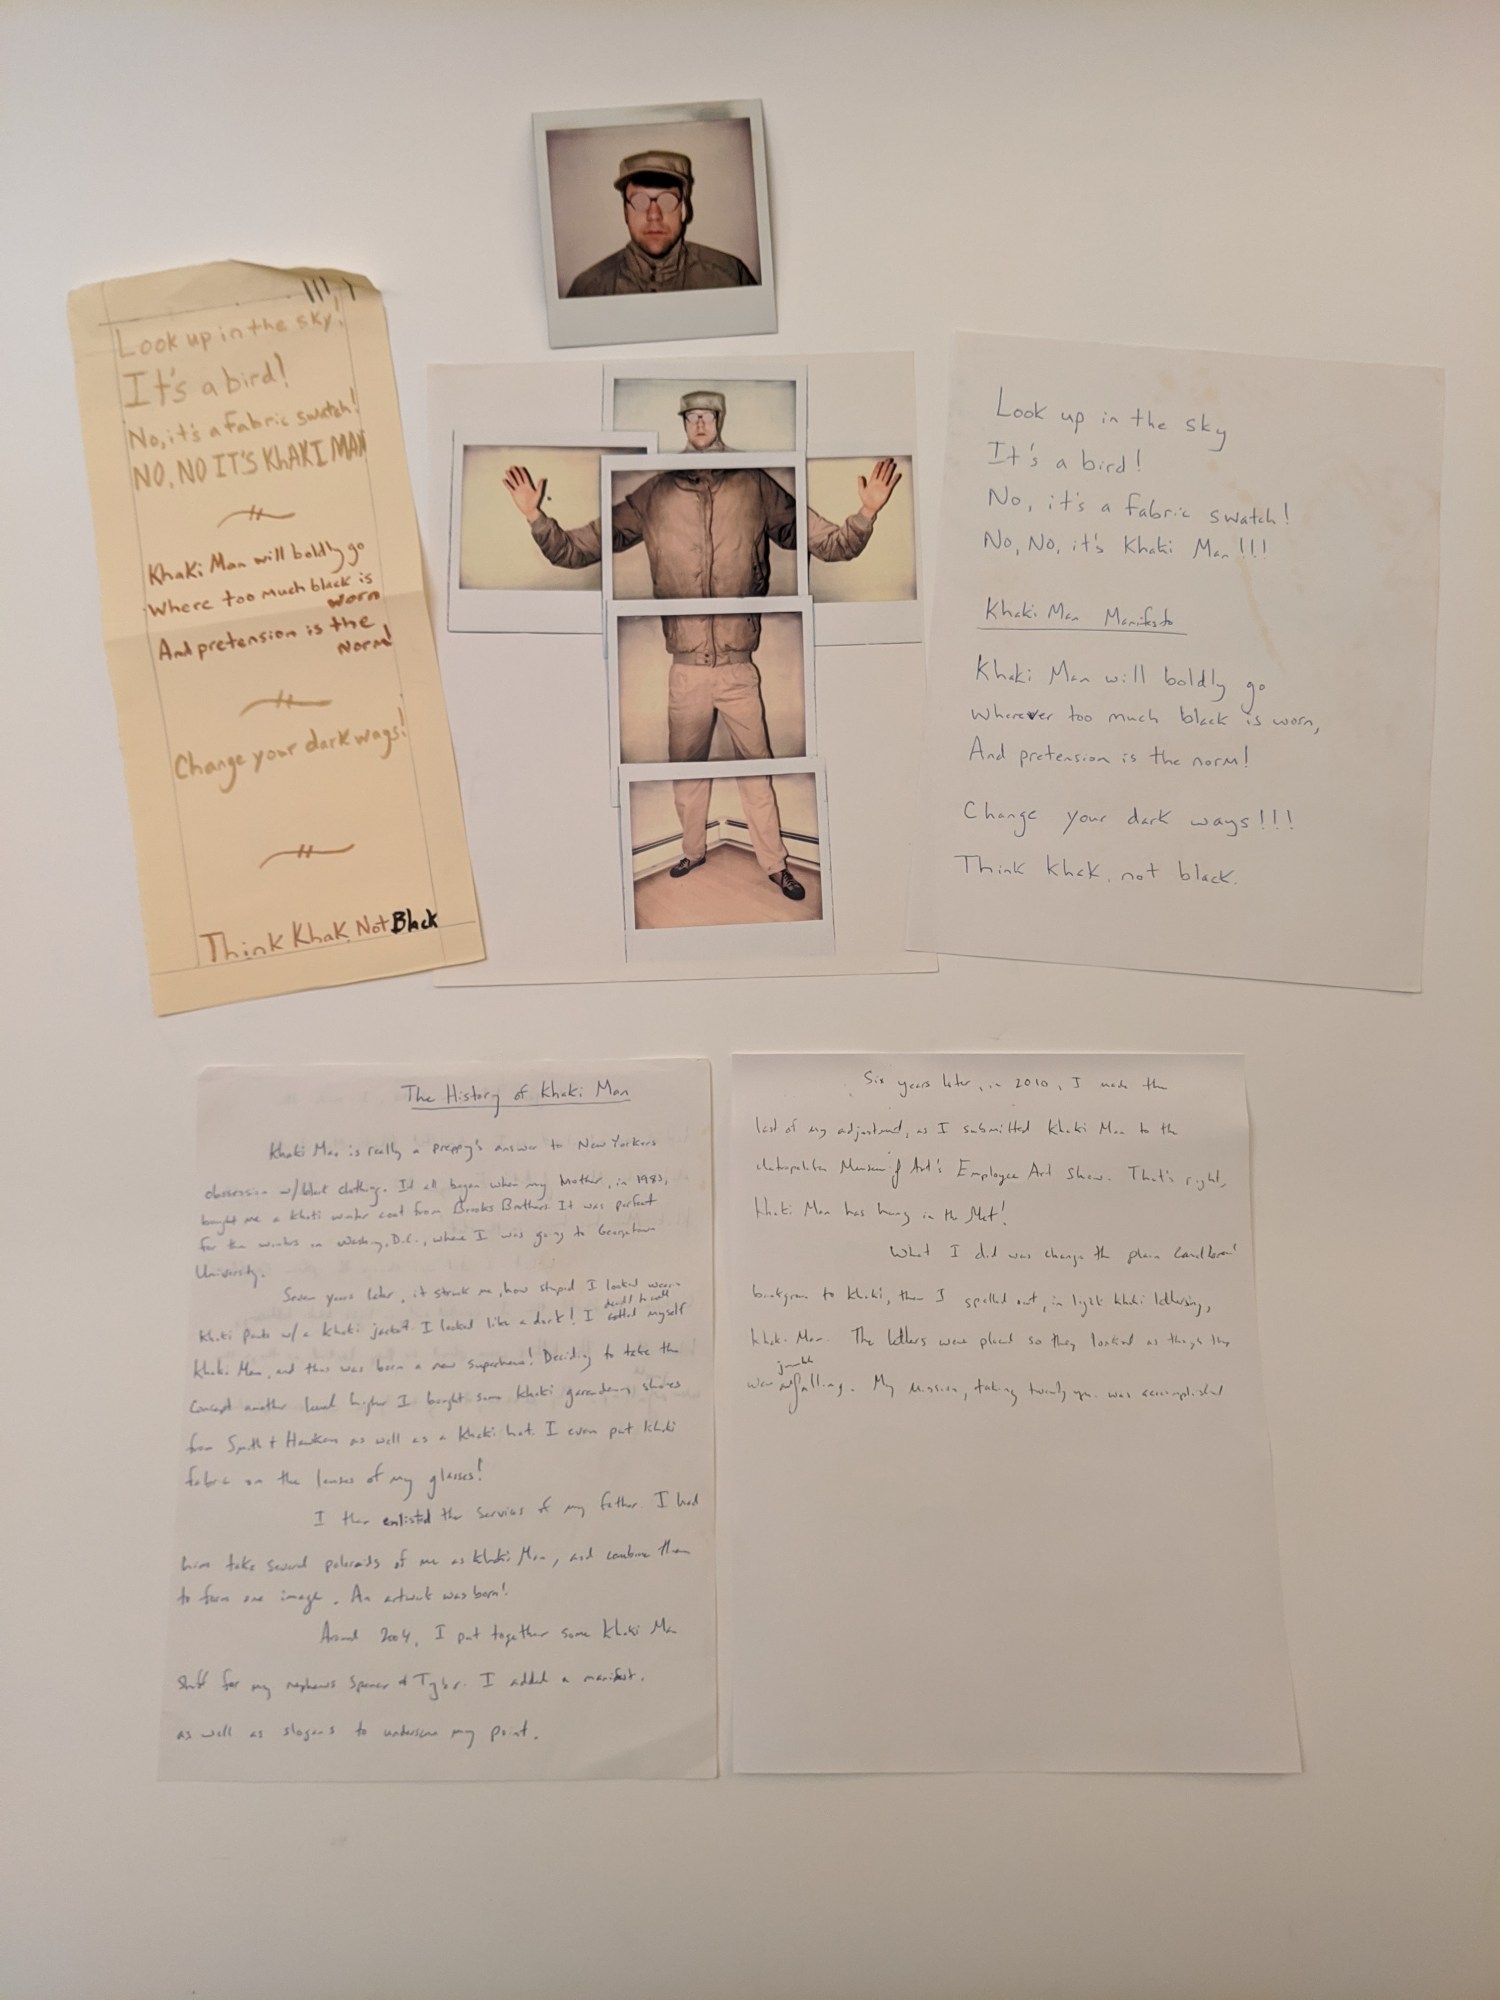 Look up in the sky!
It's a bird!
No, it's a fabric swatch!
NO, NO IT'S KhAKI MAN
Khaki Man will boldly go
Where too much black is
worn
And pretension is the
norm!
Change your dark ways!
Think Khak. Not Black
Look up in the sky
It's a bird!
No, it's a fabric swatch!
No, No, it's Khaki Man!!!
Khaki Man Manifesto
Khaki Man will boldly go
Wherever too much black is worn,
And pretension is the norm!
Change your dark ways!!!
Think Khak. not black.
The History of Khaki Man
Khaki Man is really a preppy's answer to New Yorkers
obsession w/ black clothing. It all began when my Mother, in 1983,
bought me a khaki winter coat from Brooks Brothers. It was perfect
for the winters in Washing, D.C., where I was going to Georgetown
University.
Seven years later, it struck me, how stupid I looked wearing
Khaki Pants w/ a Khaki jacket. I looked like a dork! I decided to call myself
Khaki Man, and thus was born a new superhero! Deciding to take the
concept another level higher I bought some khaki gardening shoes
from Smith + Hawken as well as a khaki hat. I even put khaki
fabric on the lenses of my glasses!
I then enlisted the services of my father. I had
him take several polaroids of me as Khaki Man, and combine them
to form one image. An artwork was born!
Around 2004, I put together some Khaki Man
stuff for my nephews Spencer + Tyler. I added a manifest.
as well as slogans to underscore my point.
Six years later, in 2010, I made the
last of my adjustment, as I submitted Khaki Man to the
Metropolitan Museum of Art's Employee Art Show. That's right,
Khaki Man has hung in the Met!
What I did was change the plain
background to khaki, then I spelled out, in light khaki lettering,
Khaki Man. The letters were placed so they looked as though they
were falling. My mission, taking twenty yrs. was accomplished